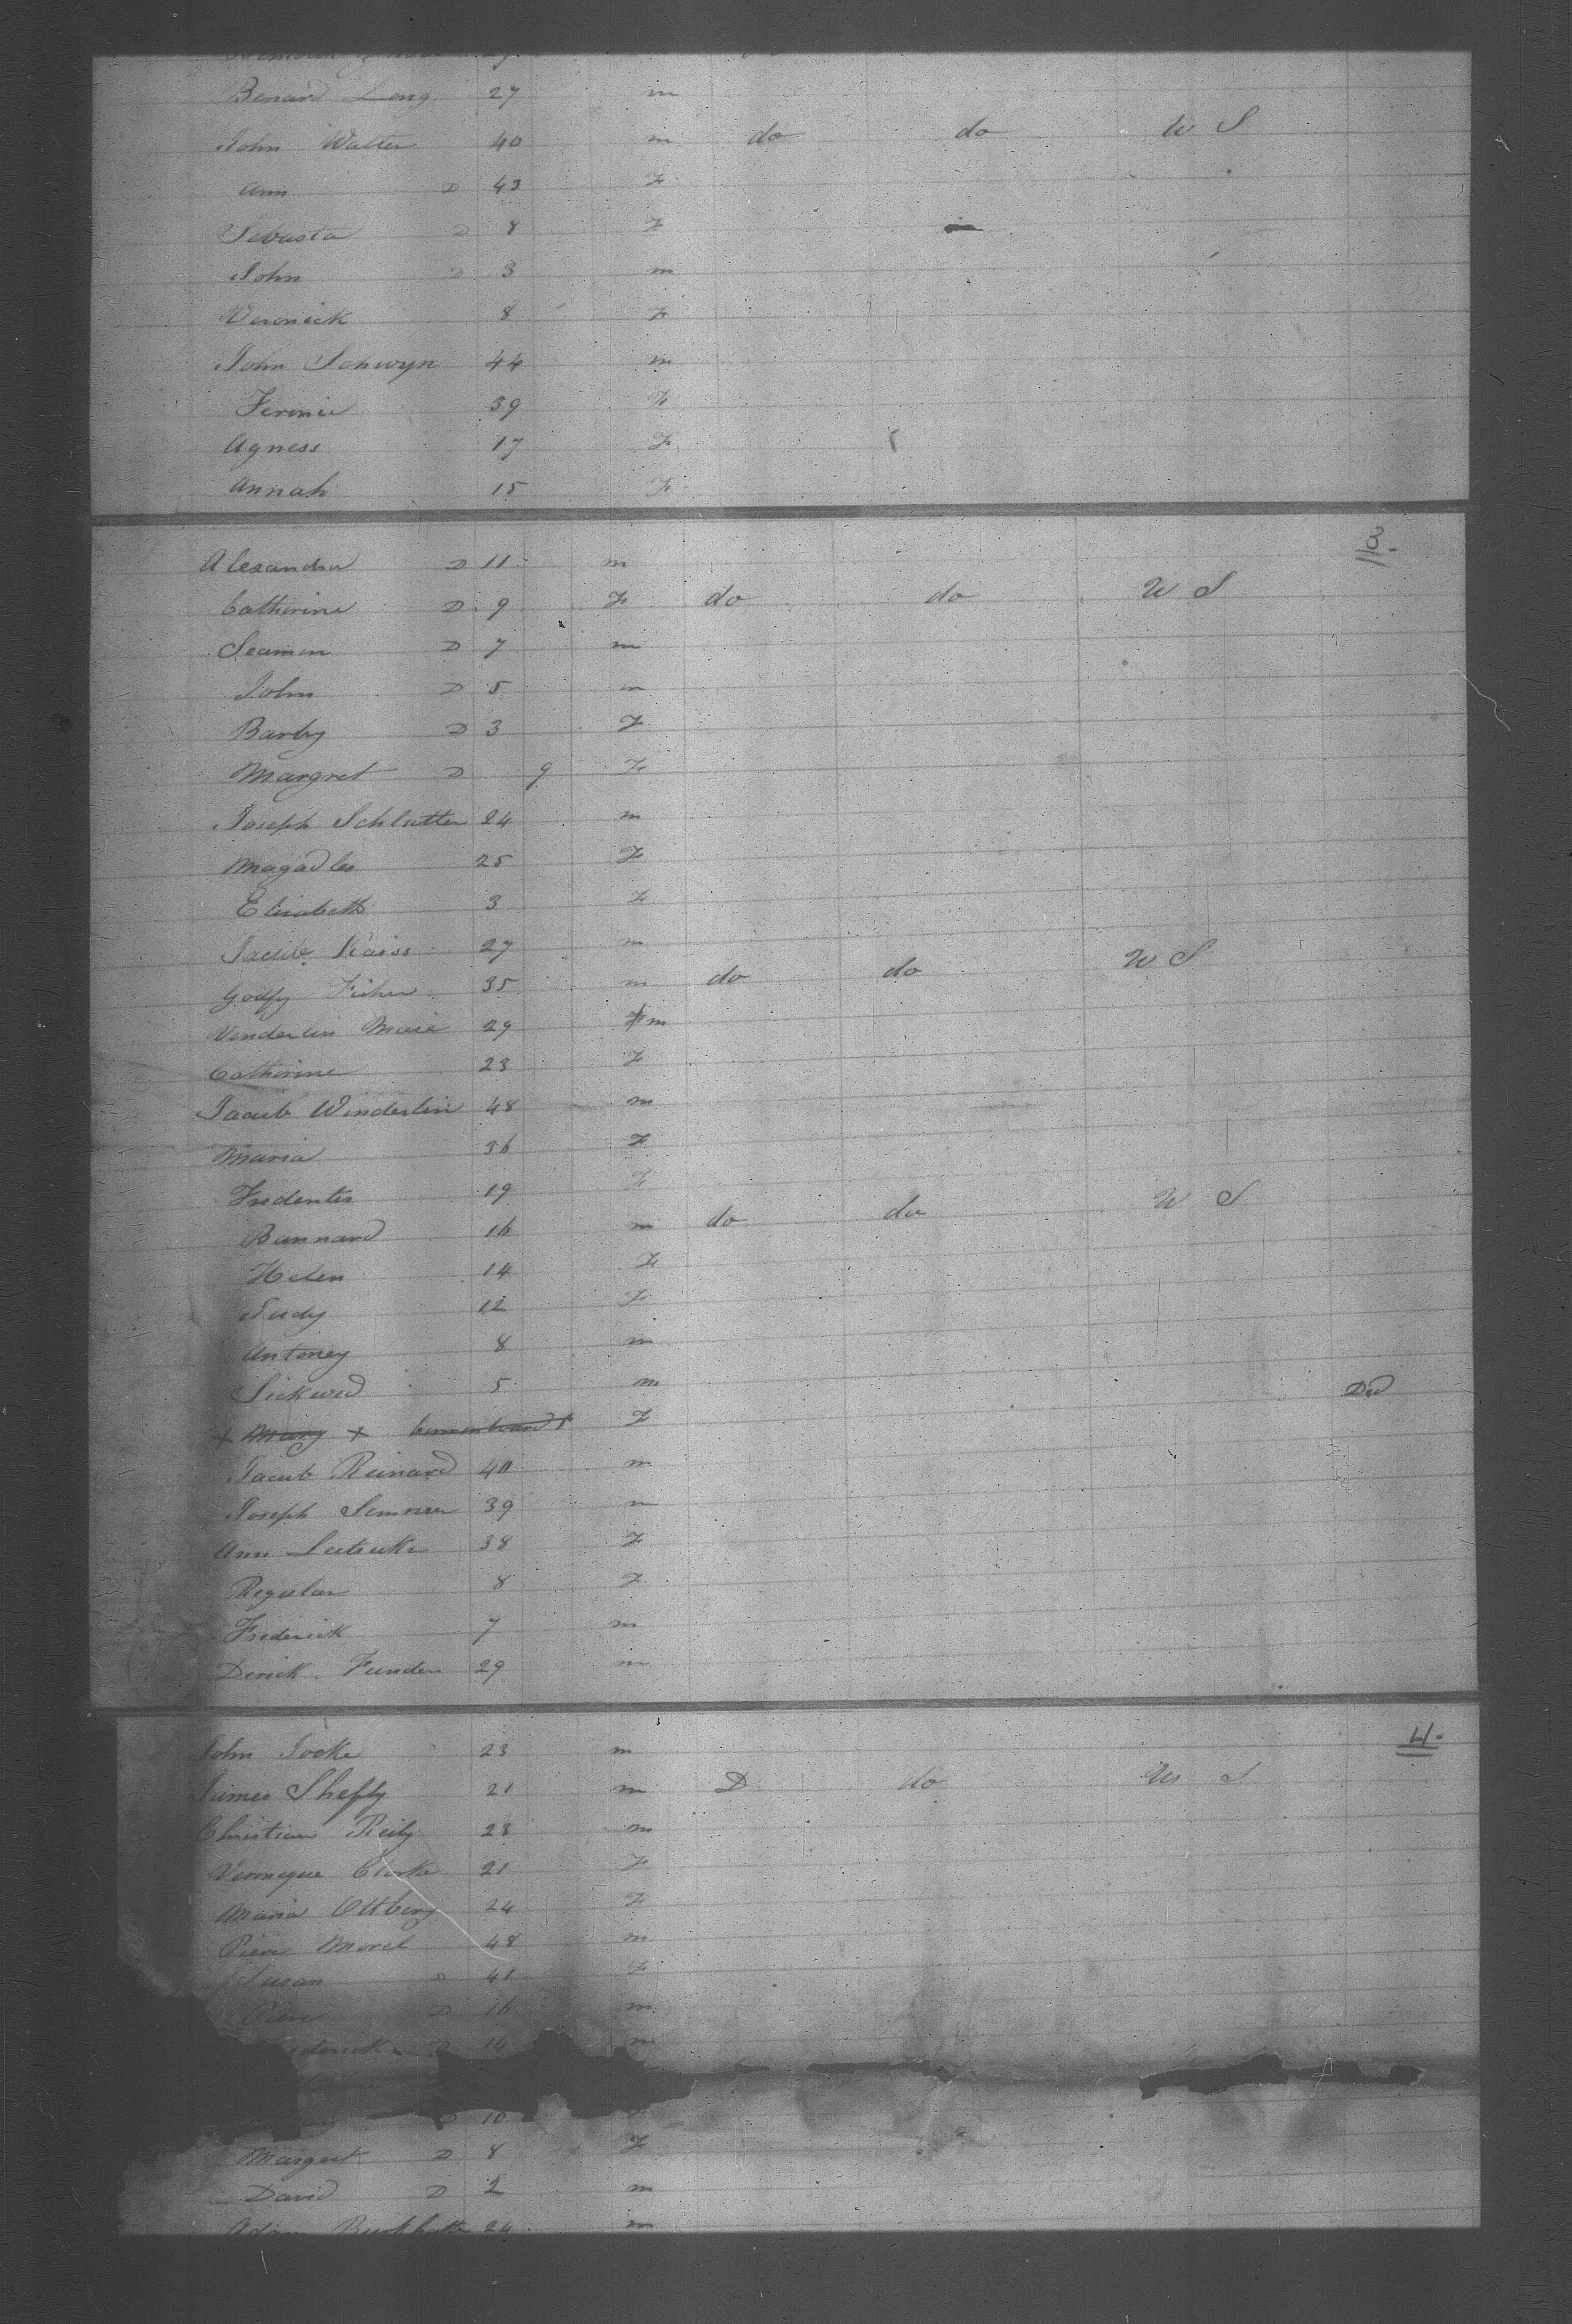 Benard Leng 27 m
John Walter 40 m do do W S
Ann D 43 F
Sebasta D 8 F
John D 3 m
Veronick 8 F
John Schwyn 44 m
Feronie 39 F
Agness 17 F
Annah 15 F
3
Alexander D 11 m
Catherine D 9 F do do W S
Seamon D 7 m
John D 5 m
Barby D 3 F
Margret D 9 F
Joseph Schlatter 24 m
Magadler 25 F
Elisabeth 3 F
Jacub Kaiss 27 m W S
Godfy Fisher 35 m do do
Venderlin Maie 29 m
Catherine 23 F
Jacub Winderlin 48 m
Maria 36 F
Fredenter 19 F W S
Bannard 16 m do do
Helen 14 F
Judy 12 F
Antoney 8 m
Sickwed 5 m Ded
+ Mary + F
Jacub Reinard 40 m
Joseph Semner 39 m
Ann Luticke 38 F
Regular 8 F
Frederick 7 m
Derick Funder 29 m
4
John Jocke 23 m
James Shefly 21 m D do W S
Christian Reily 23 m
Veronique Clarke 21 F
Maria Ottberg 24 F
Piere Morel 48 m
Susan D 41 F
Piere D 16 m
D 14 m
D 10
Margret D 8 F
David D 2 m
Adam 24 m